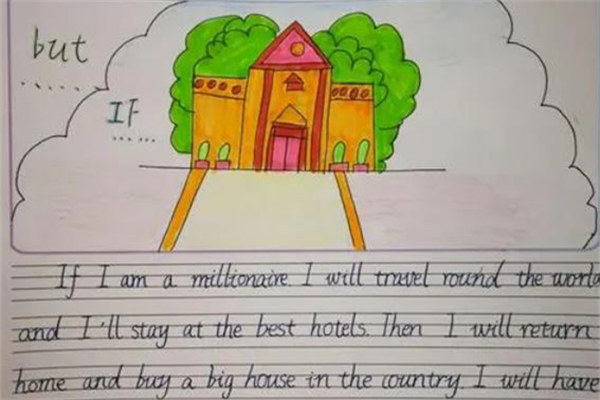 but
......
IF
......
If I am a millionaire. I will travel round the world
and I'll stay at the best hotels. Then I will return
home and buy a big house in the country. I will have